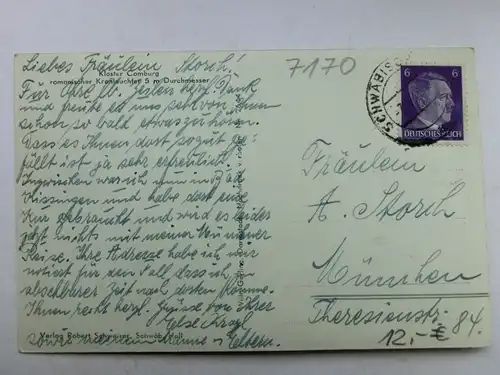 Liebes Fräulein Storch!
Kloster Comburg
romanischer Kronleuchter 5 m Durchmesser
Für Ihre lb. Zeilen herzl. Dank
und freute es uns sehr von Ihnen
schon so bald etwas zu hören.
Dass es Ihnen dort so gut ge-
fällt ist ja sehr erfreulich.
Inzwischen war ich nun in Bad
Kissingen und habe dort eine
Kur gebraucht und wird es leider
jetzt nichts mit meiner Münchner
Reise. Ihre Adresse habe ich mir
notiert für den Fall, dass ich in
absehbarer Zeit nach dorten komme.
Ihnen recht herzl. Grüsse von Ihrer
Else
sowie meinem Manne u. Eltern.
Verlag Robert Schwäb. Hall
7170
SCHWÄBISCH
6 6
DEUTSCHES REICH
Fräulein
A. Storch
München
Theresienstr. 84.
12,- €